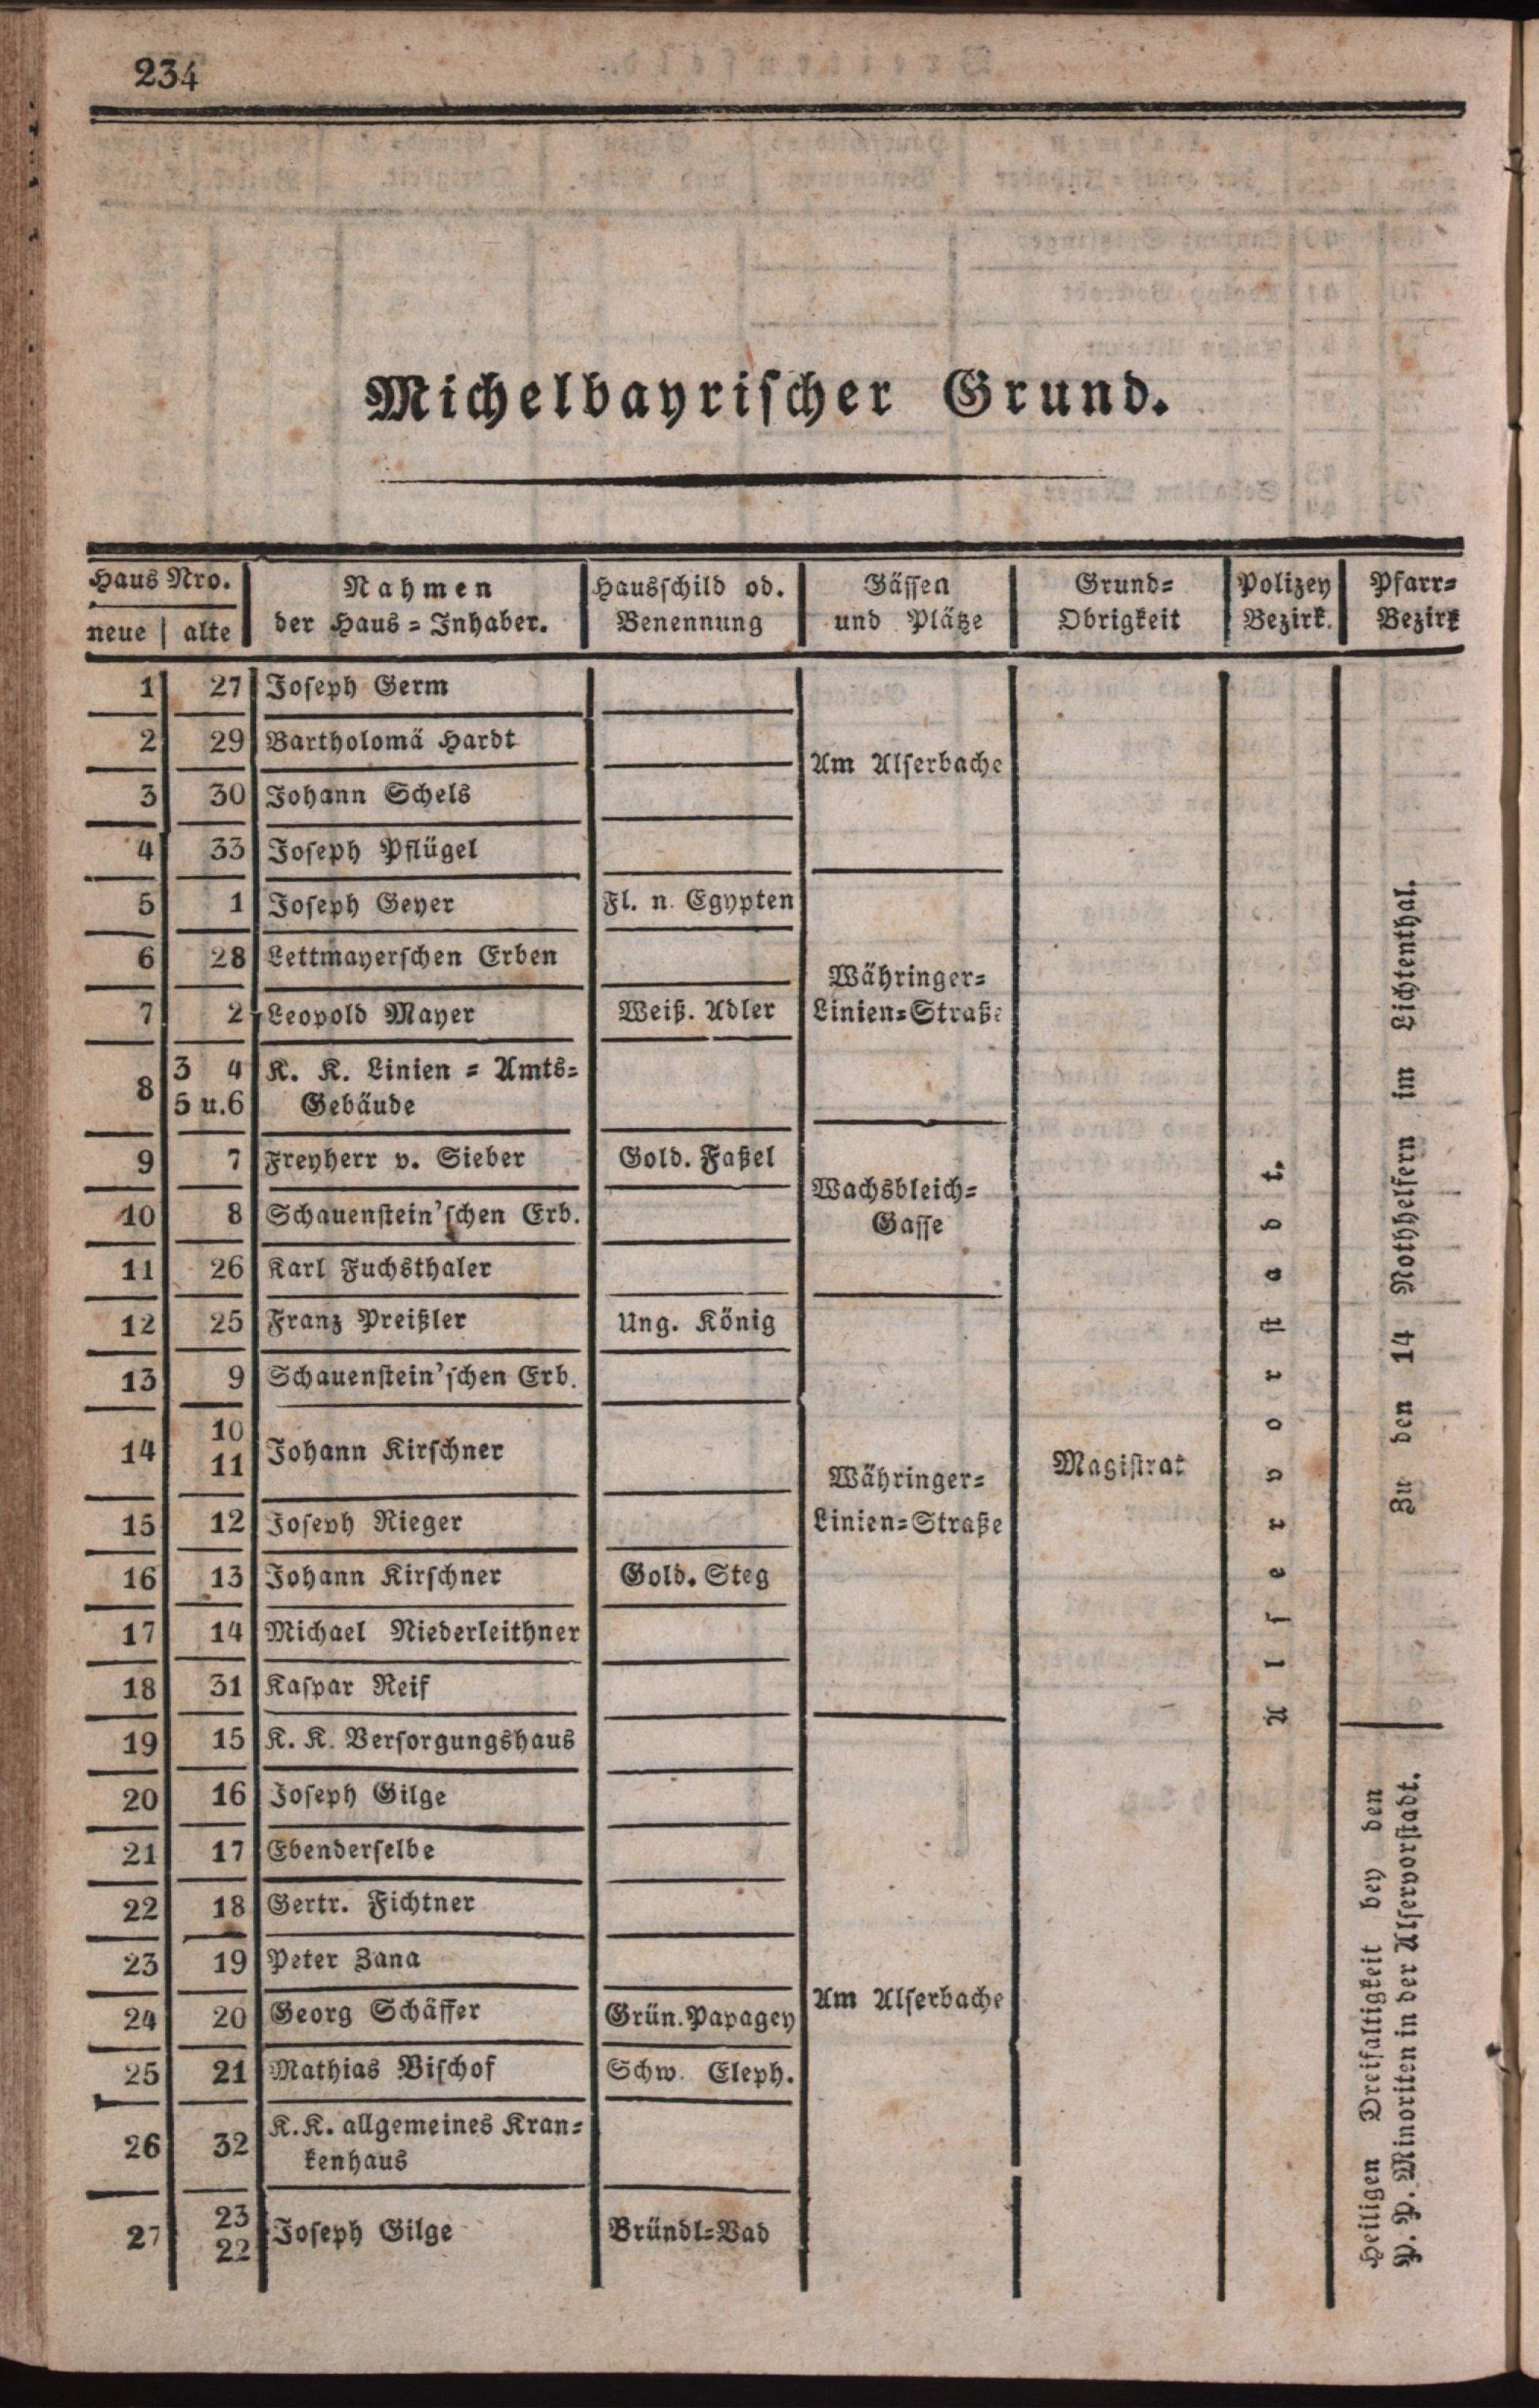 234
Michelbayrischer Grund.
Haus Nro. Nahmen Hausschild od. Gässen Grund= Polizey Pfarr=
neue alte der Haus = Inhaber. Benennung und Plätze Obrigkeit Bezirk. Bezirk
1 27 Joseph Germ
2 29 Bartholomä Hardt
Am Alserbache
3 30 Johann Schels
4 33 Joseph Pflügel
5 1 Joseph Geyer Fl. n. Egypten
6 28 Lettmayerschen Erben
Währinger=
7 2 Leopold Mayer Weiß. Adler Linien=Straße
3 4 K. K. Linien = Amts=
8
5 u.6 Gebäude
9 7 Freyherr v. Sieber Gold. Faßel
Wachsbleich=
10 8 Schauenstein'schen Erb. Gasse
11 26 Karl Fuchsthaler
12 25 Franz Preißler Ung. König
13 9 Schauenstein'schen Erb.
10
14 Johann Kirschner
11
Währinger= Magistrat
15 12 Joseph Rieger Linien=Straße
16 13 Johann Kirschner Gold. Steg
17 14 Michael Niederleithner
18 31 Kaspar Reif
19 15 K. K. Versorgungshaus
20 16 Joseph Gilge
21 17 Ebenderselbe
22 18 Gertr. Fichtner
23 19 Peter Zana
Am Alserbache
24 20 Georg Schäffer Grün. Papagey
25 21 Mathias Bischof Schw. Eleph.
26 32 K. K. allgemeines Kran=
kenhaus
23
27 Joseph Gilge Bründl=Bad
22
Alservorstadt.
Zu den 14 Nothhelfern im Lichtenthal.
Heiligen Dreifaltigkeit bey den
P. P. Minoriten in der Alservorstadt.